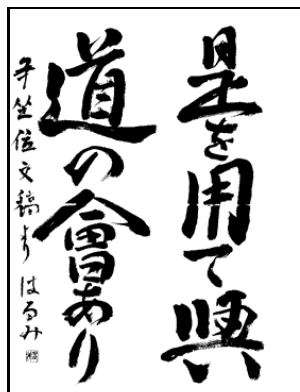 是を用て興
道の會あり
坐位文稿より はるみ